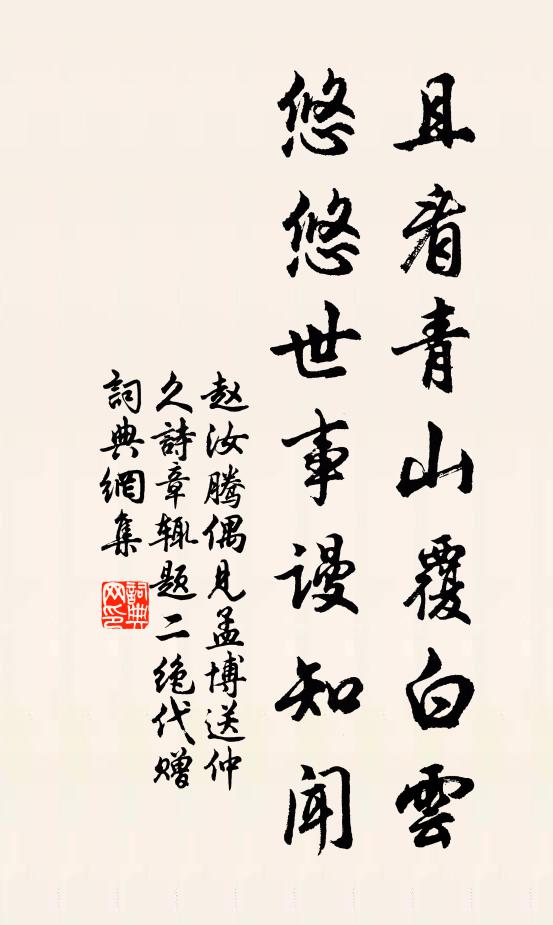 且看青山覆白雲
悠悠世事谩知闻
赵汝腾偶见孟博送仲
久詩章辄题二绝代赠
詞典網集
詞典
网印